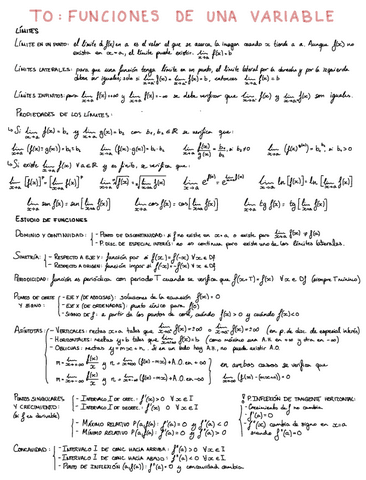 T0: FUNCIONES DE UNA VARIABLE
LÍMITES
LÍMITE EN UN PUNTO: el límite de f(x) en a es el valor al que se acerca la imagen cuando x tiende a a. Aunque f(x) no
exista en x=a, el límite puede existir. lim x→a f(x) = b
LÍMITES LATERALES: para que una función tenga límite en un punto, el límite lateral por la derecha y por la izquierda
deben ser iguales, solo si lim f(x) = lim f(x) = b, entonces lim x→a f(x) = b
LÍMITES INFINITOS: para lim f(x)=+∞ y lim f(x)=-∞ se debe verificar que lim f(x) y lim f(x) son iguales.
PROPIEDADES DE LOS LÍMITES:
↳ Si lim x→a f(x) = b₁ y lim x→a g(x) = b₂ con b₁, b₂ ∈ ℝ se verifica que:
lim (f(x)+g(x)) = b₁+b₂ lim (f(x)·g(x)) = b₁·b₂ lim f(x)/g(x) = b₁/b₂ si b₂≠0
↳ Si existe lim x→a f(x) ∀a∈ℝ y se verifica que:
lim sen f(x) = sen[lim f(x)] lim cos f(x) = cos[lim f(x)] lim tg f(x) = tg[lim f(x)]
ESTUDIO DE FUNCIONES
DOMINIO Y CONTINUIDAD: - PUNTO DE DISCONTINUIDAD: si f no existe en x=a, o existe para
- P. DISC. DE ESPECIAL INTERÉS: no es continua pero existe uno de los límites laterales.
SIMETRÍA: - RESPECTO A EJE Y: función par si f(x)=f(-x) ∀x∈Df
- RESPECTO A ORIGEN: función impar si f(-x)=-f(x) ∀x∈Df
PERIODICIDAD: función es periódica con periodo T cuando se verifica que f(x+T)=f(x) ∀x∈Df (siempre T mínimo)
PUNTOS DE CORTE - EJE X (DE ABSCISAS): soluciones de la ecuación f(x)=0
Y SIGNO: - EJE Y (DE ORDENADAS): punto único para f(0)
- SIGNO DE f: a partir de los puntos de corte, cuándo f(x)>0 y cuándo f(x)<0
ASÍNTOTAS: - VERTICALES: rectas x=a tales que lim f(x)=±∞ o lim f(x)=±∞ (en p. de disc. de especial interés)
- HORIZONTALES: rectas y=b tales que lim f(x)=b (como máximo una A.H. en +∞ y otra en -∞)
- OBLICUAS: rectas y=mx+n. Si en un lado hay A.H., no puede existir A.O.
m = lim x→+∞ f(x)/x y n = lim x→+∞ (f(x)-mx) → A.O. en +∞ en ambos casos se verifica que
m = lim x→-∞ f(x)/x y n = lim x→-∞ (f(x)-mx) → A.O. en -∞ lim (f(x)-(mx+n)) = 0
PUNTOS SINGULARES - INTERVALO I DE CREC.: f'(x)>0 ∀x∈I
Y CRECIMIENTO: - INTERVALO I DE DECREC.: f'(x)<0 ∀x∈I
(si f es derivable) - MÁXIMO RELATIVO P(a,f(a)): f'(a)=0 y f''(a)<0
- MÍNIMO RELATIVO P(a,f(a)): f'(a)=0 y f''(a)>0
P. INFLEXIÓN DE TANGENTE HORIZONTAL:
- Crecimiento de f no cambia
- f'(a)=0
- f''(x) cambia de signo en x=a
siendo f''(a)=0
CONCAVIDAD: - INTERVALO I DE CONC. HACIA ARRIBA: f''(x)>0 ∀x∈I
- INTERVALO I DE CONC. HACIA ABAJO: f''(x)<0 ∀x∈I
- PUNTO DE INFLEXIÓN (a,f(a)): f''(a)=0 y concavidad cambia